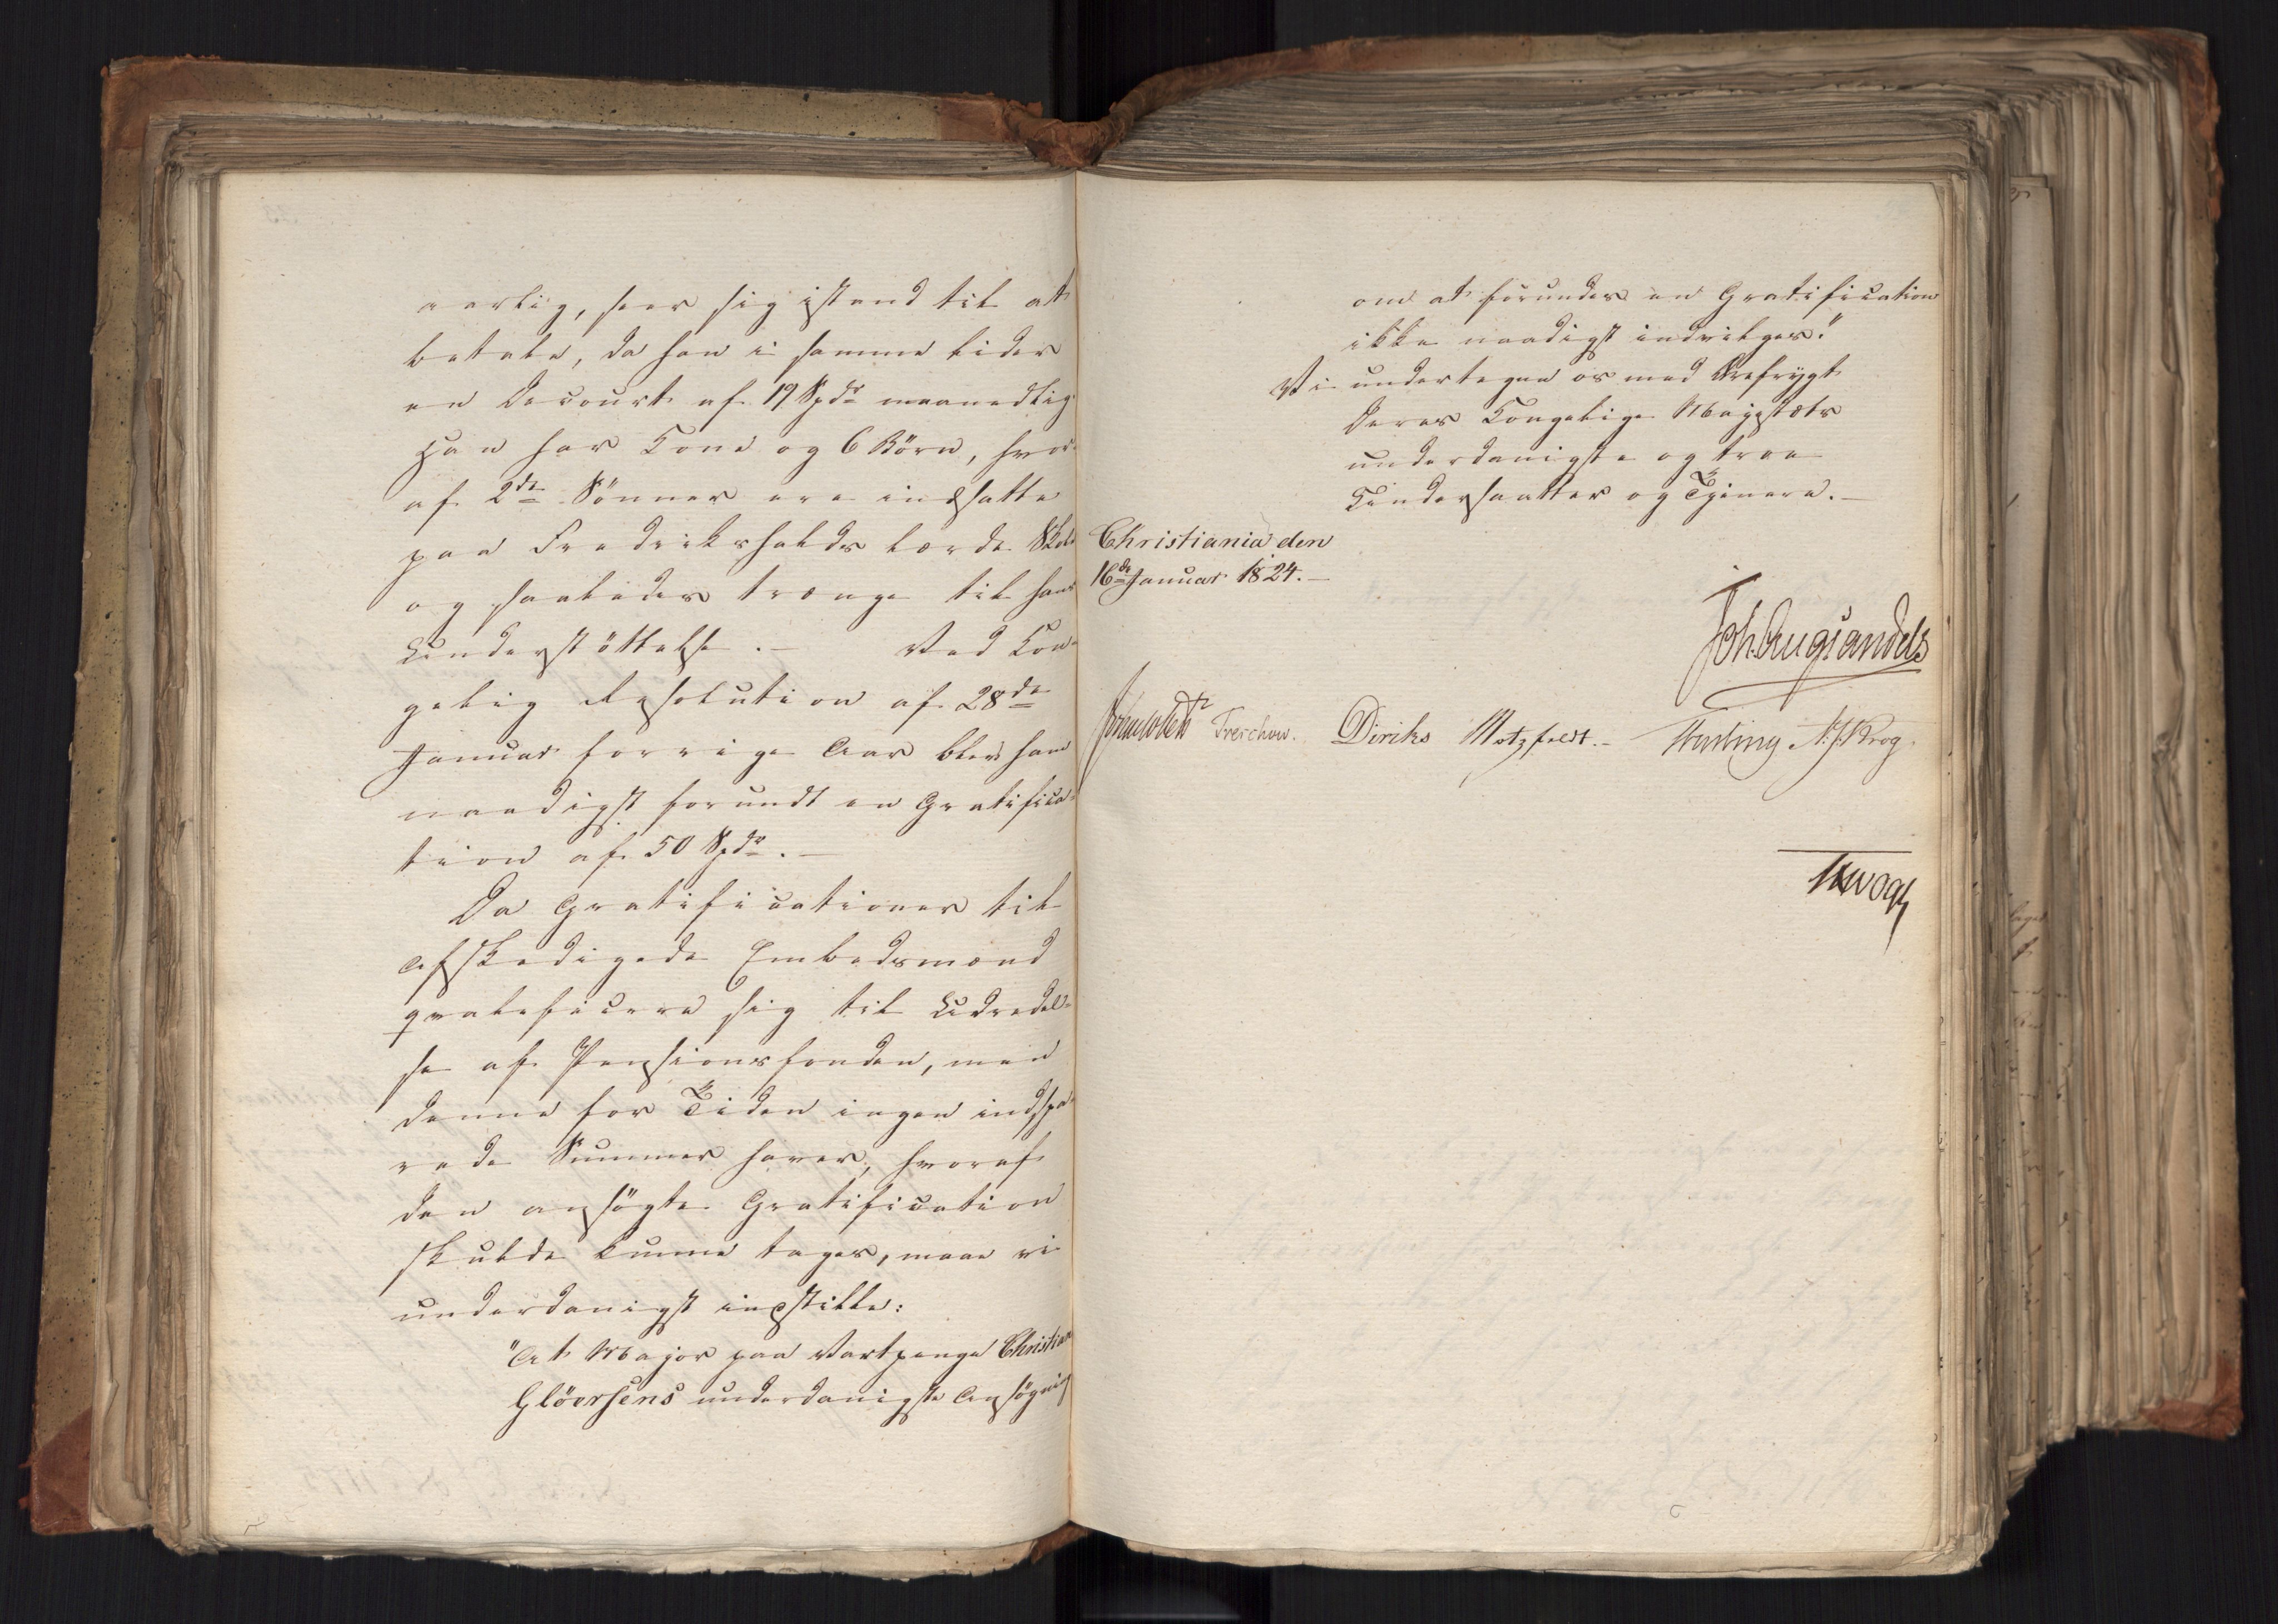 aarlig, seer sig istand til at
betale, da han i samme lider
en Decourt af 19 Spdr maanedlig
Han har Kone og 6 Börn, hvor-
af 2de Sönner ere indsatte
paa Fredrikshalds lærde Skole
og saaledes trænge til hans
Understöttelse. — Ved Kon-
gelig Resolution af 28de
Januar forrige Aar blev ham
naadigst forundt en Gratifica-
tion af 50 Spdr. —
Da Gratificationer til
afskedigede Embedsmænd
qvalificere sig til Udredel-
se af Pensionsfonden, men
denne for Tiden ingen indspa-
rede Summer haver, hvoraf
den ansögte Gratification
skulde kunne tages, maae vi
underdanigst indstille:
"At Major paa Vartpenge Christian
Glöersens underdanigste Ansögning
om at forundes en Gratification
ikke naadigst indvilges."
Vi undertegne os med Ærefrygt
Deres Kongelige Majestæts
underdanigste og troe
Undersaatter og Tjenere. —
Christiania den
16de Januar 1824. —
Joh. Aug. Sandels
Treschow. Diriks Motzfeldt. — N. J. Krog